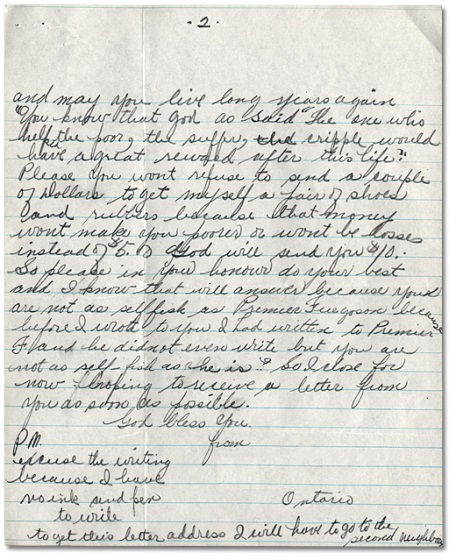 - 2 -
and may you live long years again
"You know that god as said "The one who
help the poor, the suffer, the cripple would
have a great reward after this life."
Please you wont refuse to send a couple
of Dollars to get myself a pair of shoes
and rubbers because that money
wont make you poorer or wont be losses
instead of $5.00 God will send you $10.
So please in your honour do your best
and I know that will answer because your
are not as selffish as Premier Furgoson because
before I wrote to you I had written to Premier
F. and he did not even write but you are
not as self fish as he is? So I close for
now hoping to receive a letter from
you as soon as possible.
God bless You.
from
P.M.
excuse the writing
because I have
no ink and pen
to write
Ontario
to get this letter address I will have to go to the
second neighbour